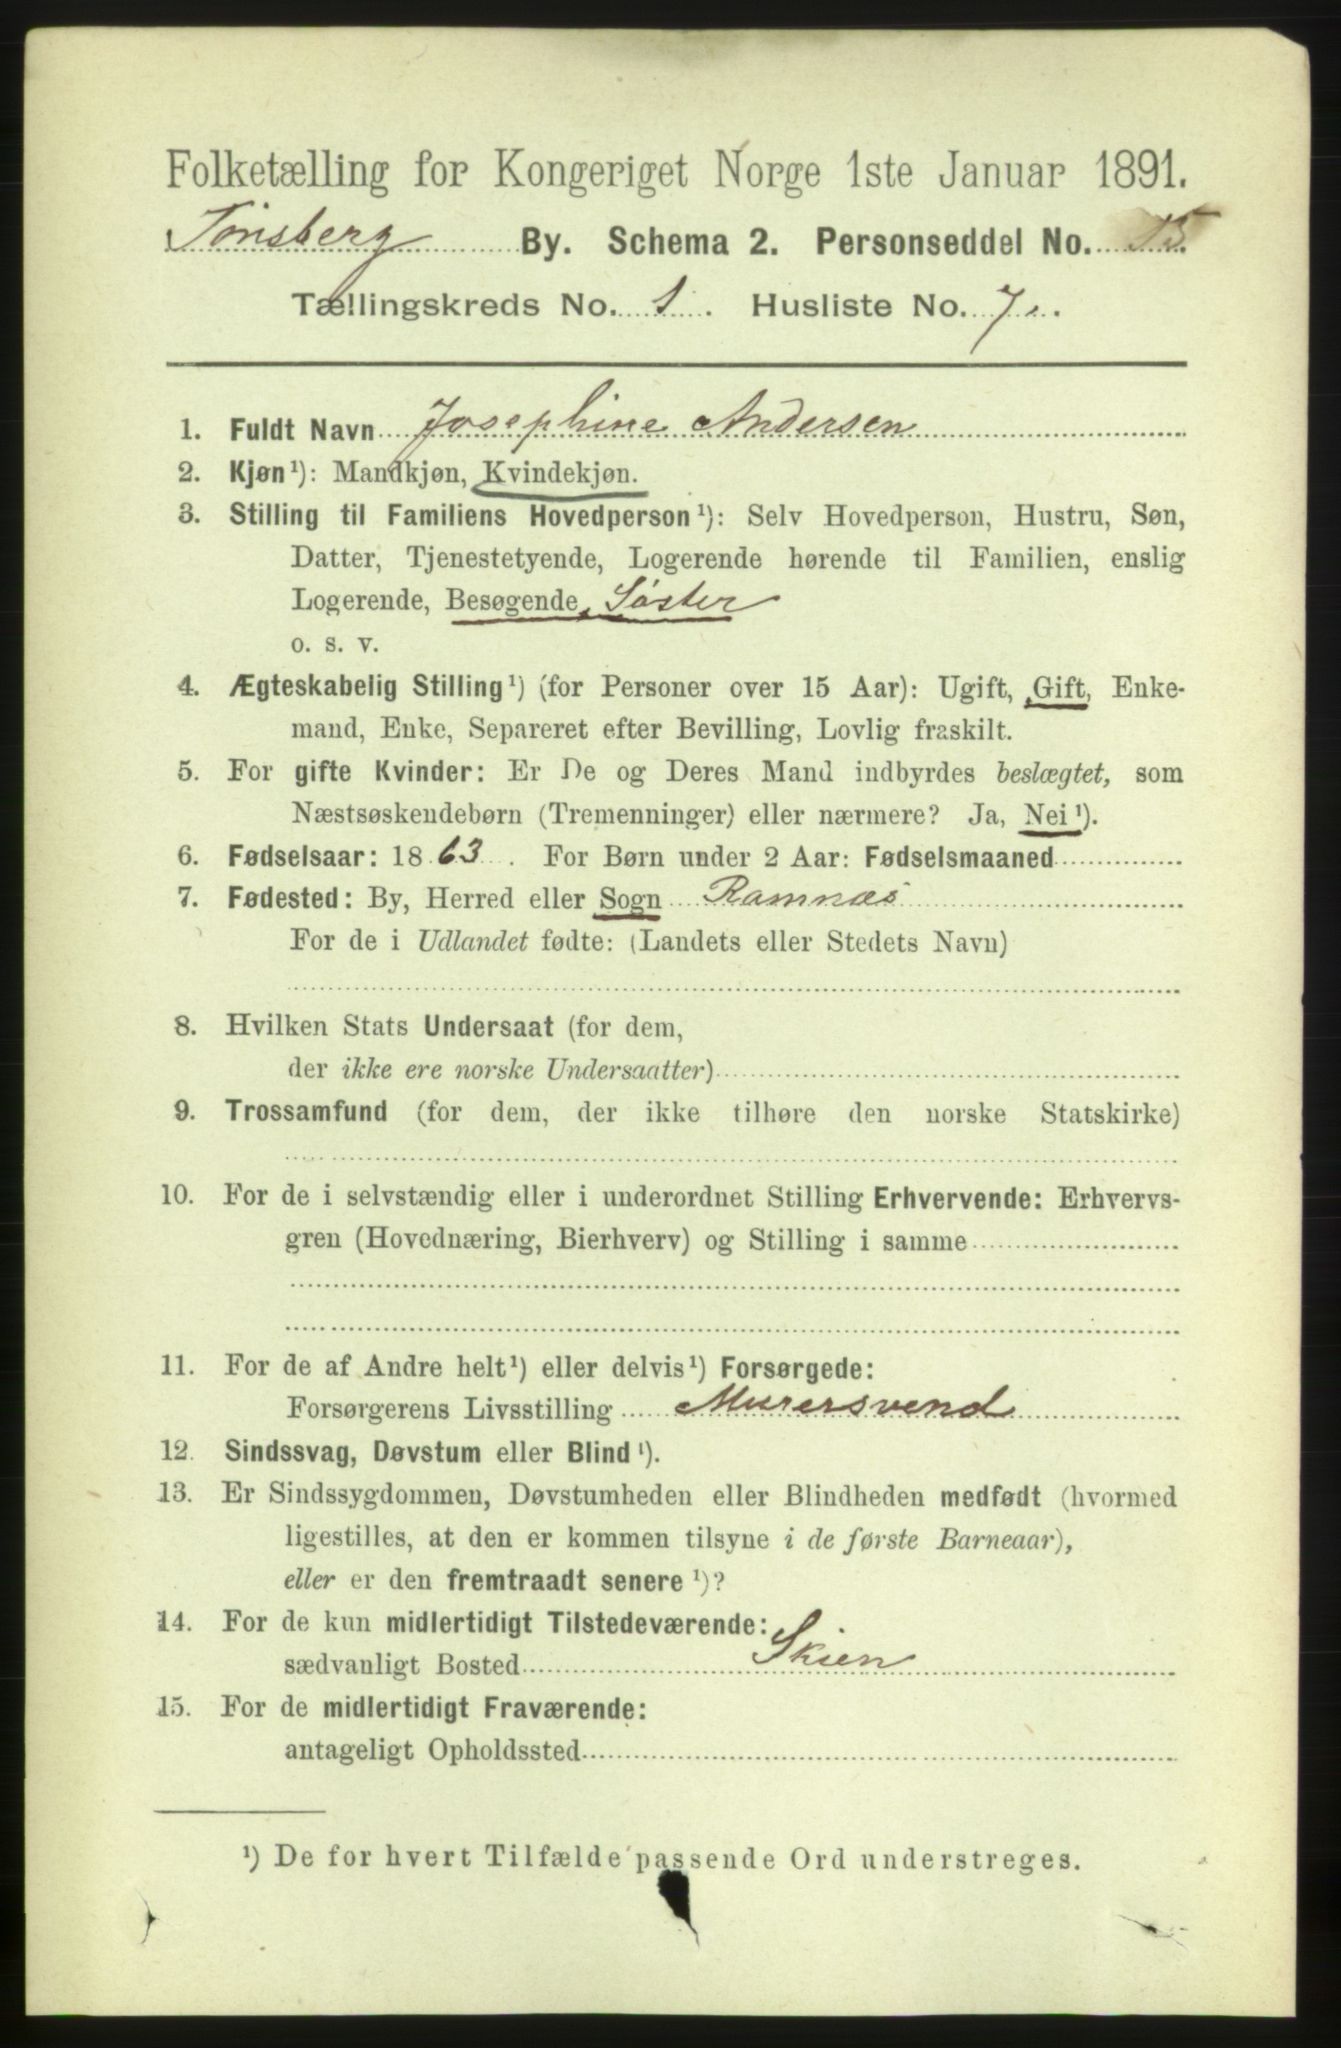 Folketælling for Kongeriget Norge 1ste Januar 1891.
Tønsberg By. Schema 2. Personseddel No. 15.
Tællingskreds No. 1. Husliste No. 7.
1. Fuldt Navn Josephine Andersen
2. Kjøn¹): Mandkjøn, Kvindekjøn.
3. Stilling til Familiens Hovedperson¹): Selv Hovedperson, Hustru, Søn,
Datter, Tjenestetyende, Logerende hørende til Familien, enslig
Logerende, Besøgende, Søster
o. s. v.
4. Ægteskabelig Stilling¹) (for Personer over 15 Aar): Ugift, Gift, Enke-
mand, Enke, Separeret efter Bevilling, Lovlig fraskilt.
5. For gifte Kvinder: Er De og Deres Mand indbyrdes beslægtet, som
Næstsøskendebørn (Tremenninger) eller nærmere? Ja, Nei¹).
6. Fødselsaar: 1863. For Børn under 2 Aar: Fødselsmaaned
7. Fødested: By, Herred eller Sogn Ramnæs
For de i Udlandet fødte: (Landets eller Stedets Navn)
8. Hvilken Stats Undersaat (for dem,
der ikke ere norske Undersaatter)
9. Trossamfund (for dem, der ikke tilhøre den norske Statskirke)
10. For de i selvstændig eller i underordnet Stilling Erhvervende: Erhvervs-
gren (Hovednæring, Bierhverv) og Stilling i samme
11. For de af Andre helt¹) eller delvis¹) Forsørgede:
Forsørgerens Livsstilling Murersvend
12. Sindssvag, Døvstum eller Blind¹).
13. Er Sindssygdommen, Døvstumheden eller Blindheden medfødt (hvormed
ligestilles, at den er kommen tilsyne i de første Barneaar),
eller er den fremtraadt senere¹)?
14. For de kun midlertidigt Tilstedeværende:
sædvanligt Bosted Skien
15. For de midlertidigt Fraværende:
antageligt Opholdssted
¹) De for hvert Tilfælde passende Ord understreges.